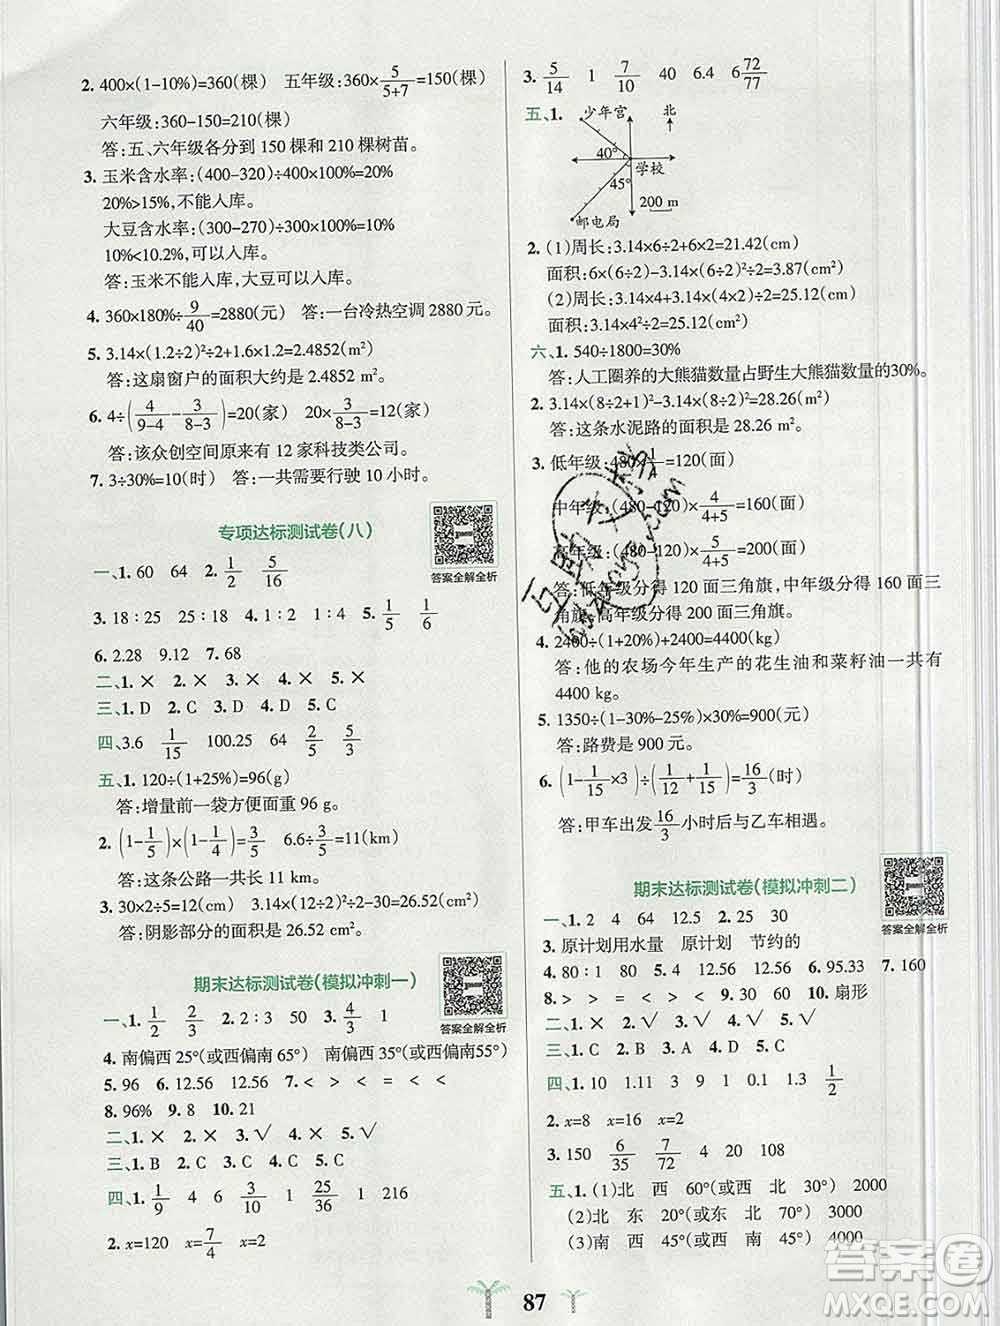 2. 400×(1-10%)=360(棵)　五年级:360×5/(5+7)=150(棵)
六年级:360-150=210(棵)
答:五、六年级各分到 150 棵和 210 棵树苗。
3. 玉米含水率:(400-320)÷400×100%=20%
20%>15%,不能入库。
大豆含水率:(300-270)÷300×100%=10%
10%<10.2%,可以入库。
答:玉米不能入库,大豆可以入库。
4. 360×180%÷9/40=2880(元)　答:一台冷热空调 2880 元。
5. 3.14×(1.2÷2)²÷2+1.2×1.6=2.4852(m²)
答:这扇窗户的面积大约是 2.4852 m²。
6. 4÷(4/(9-4)-3/(8-3))=20(家)　20×3/(8-3)=12(家)
答:该众创空间原来有 12 家科技类公司。
7. 3÷30%=10(时)　答:一共需要行驶 10 小时。
专项达标测试卷(八)
答案全解全析
一、1. 60　64　2. 1/2　5/16
3. 18∶25　18∶17　4. 1∶3　1∶4　5. 1/5　1/6
6. 2.28　9.12　7. 68
二、1. ×　2. ×　3. ×　4. ×
三、1. D　2. C　3. B　4. D　5. C
四、3.6　1/15　100.25　64　2/5　3/5
五、1. 120÷(1+25%)=96(g)
答:增量前一袋方便面重 96 g。
2. (1-1/5)×(1-1/4)=3/5　6.6÷3/5=11(km)
答:这条公路一共长 11 km。
3. 30×2÷5=12(cm)　3.14×12²-30×12÷2×... 
答:阴影部分的面积是 26.52 cm²。
期末达标测试卷(模拟冲刺一)
答案全解全析
一、1. 1/2　2/3　2. 2∶3　50　3. 4/3　1
4. 南偏西 25°(或西偏南 65°)　南偏西35°(或西偏南55°)
5. 96　6. 12.56　12.56　7. <　>　<　=　<　<
8. 96%　9. 8　10. 21
二、1. ×　2. ×　3. √　4. ×　5. √
三、1. B　2. C　3. B　4. D　5. C
四、1. 1/9　4　6　3/10　1　25/36　1　216
2. x=120　x=7/4　x=2
3. 5/14　1　7/10　40　6.4　6 72/77
五、1.
少年宫　北
40°
学校
45°
200 m
邮电局
2. (1)周长:3.14×6÷2+6×2=21.42(cm)
面积:6×(6÷2)-3.14×(6÷2)²÷2=3.87(cm²)
(2)周长:3.14×4+3.14×(4×2)÷2=
面积:3.14×4²÷2=
六、1. 540÷1800=30%
答:人工圈养的大熊猫数量占野生大熊猫数量的30%。
2. 3.14×(8÷2+1)²-3.14×(8÷2)²=28.26(m²)
答:这条水泥路的面积是 28.26 m²。
3. 低年级:480×1/4=120(面)
中年级:(480-120)×4/(4+5)=160(面)
高年级:(480-120)×5/(4+5)=200(面)
答:低年级分得 120 面三角旗,中年级分得 160 面三
角旗,高年级分得 200 面三角旗。
4. 2400÷(1+20%)+2400=4400(kg)
答:他的农场今年生产的花生油和菜籽油一共有
4400 kg。
5. 1350÷(1-30%-25%)×30%=900(元)
答:路费是 900 元。
6. (1-1/15×3)÷(1/15+1/12)=16/3(时)
答:甲车出发16/3小时后与乙车相遇。
期末达标测试卷(模拟冲刺二)
答案全解全析
一、1. 2　4　64　12.5　2. 25　30
3. 原计划用水量　原计划　节约的
4. 80∶1　80　5. 12.56　12.56　6. 95.33　7. 160
8. >　>　>　<　=　<　9. 300　60　10. 扇形
二、1. ×　2. √　3. √　4. ×　5. √
三、1. C　2. B　3. A　4. C　5. D
四、1. 10　1.11　3　9　1　0.1　1.3　1/2
2. x=8　x=16　x=2
3. 150　6/35　7/72　20　108
五、1. (1)北　西　60°(或西　北　30°)　2000
(2)北　东　20°(或东　北　70°)　3000
(3)南　西　45°(或西　南　45°)　4000
87
答案圈
MXQE.COM